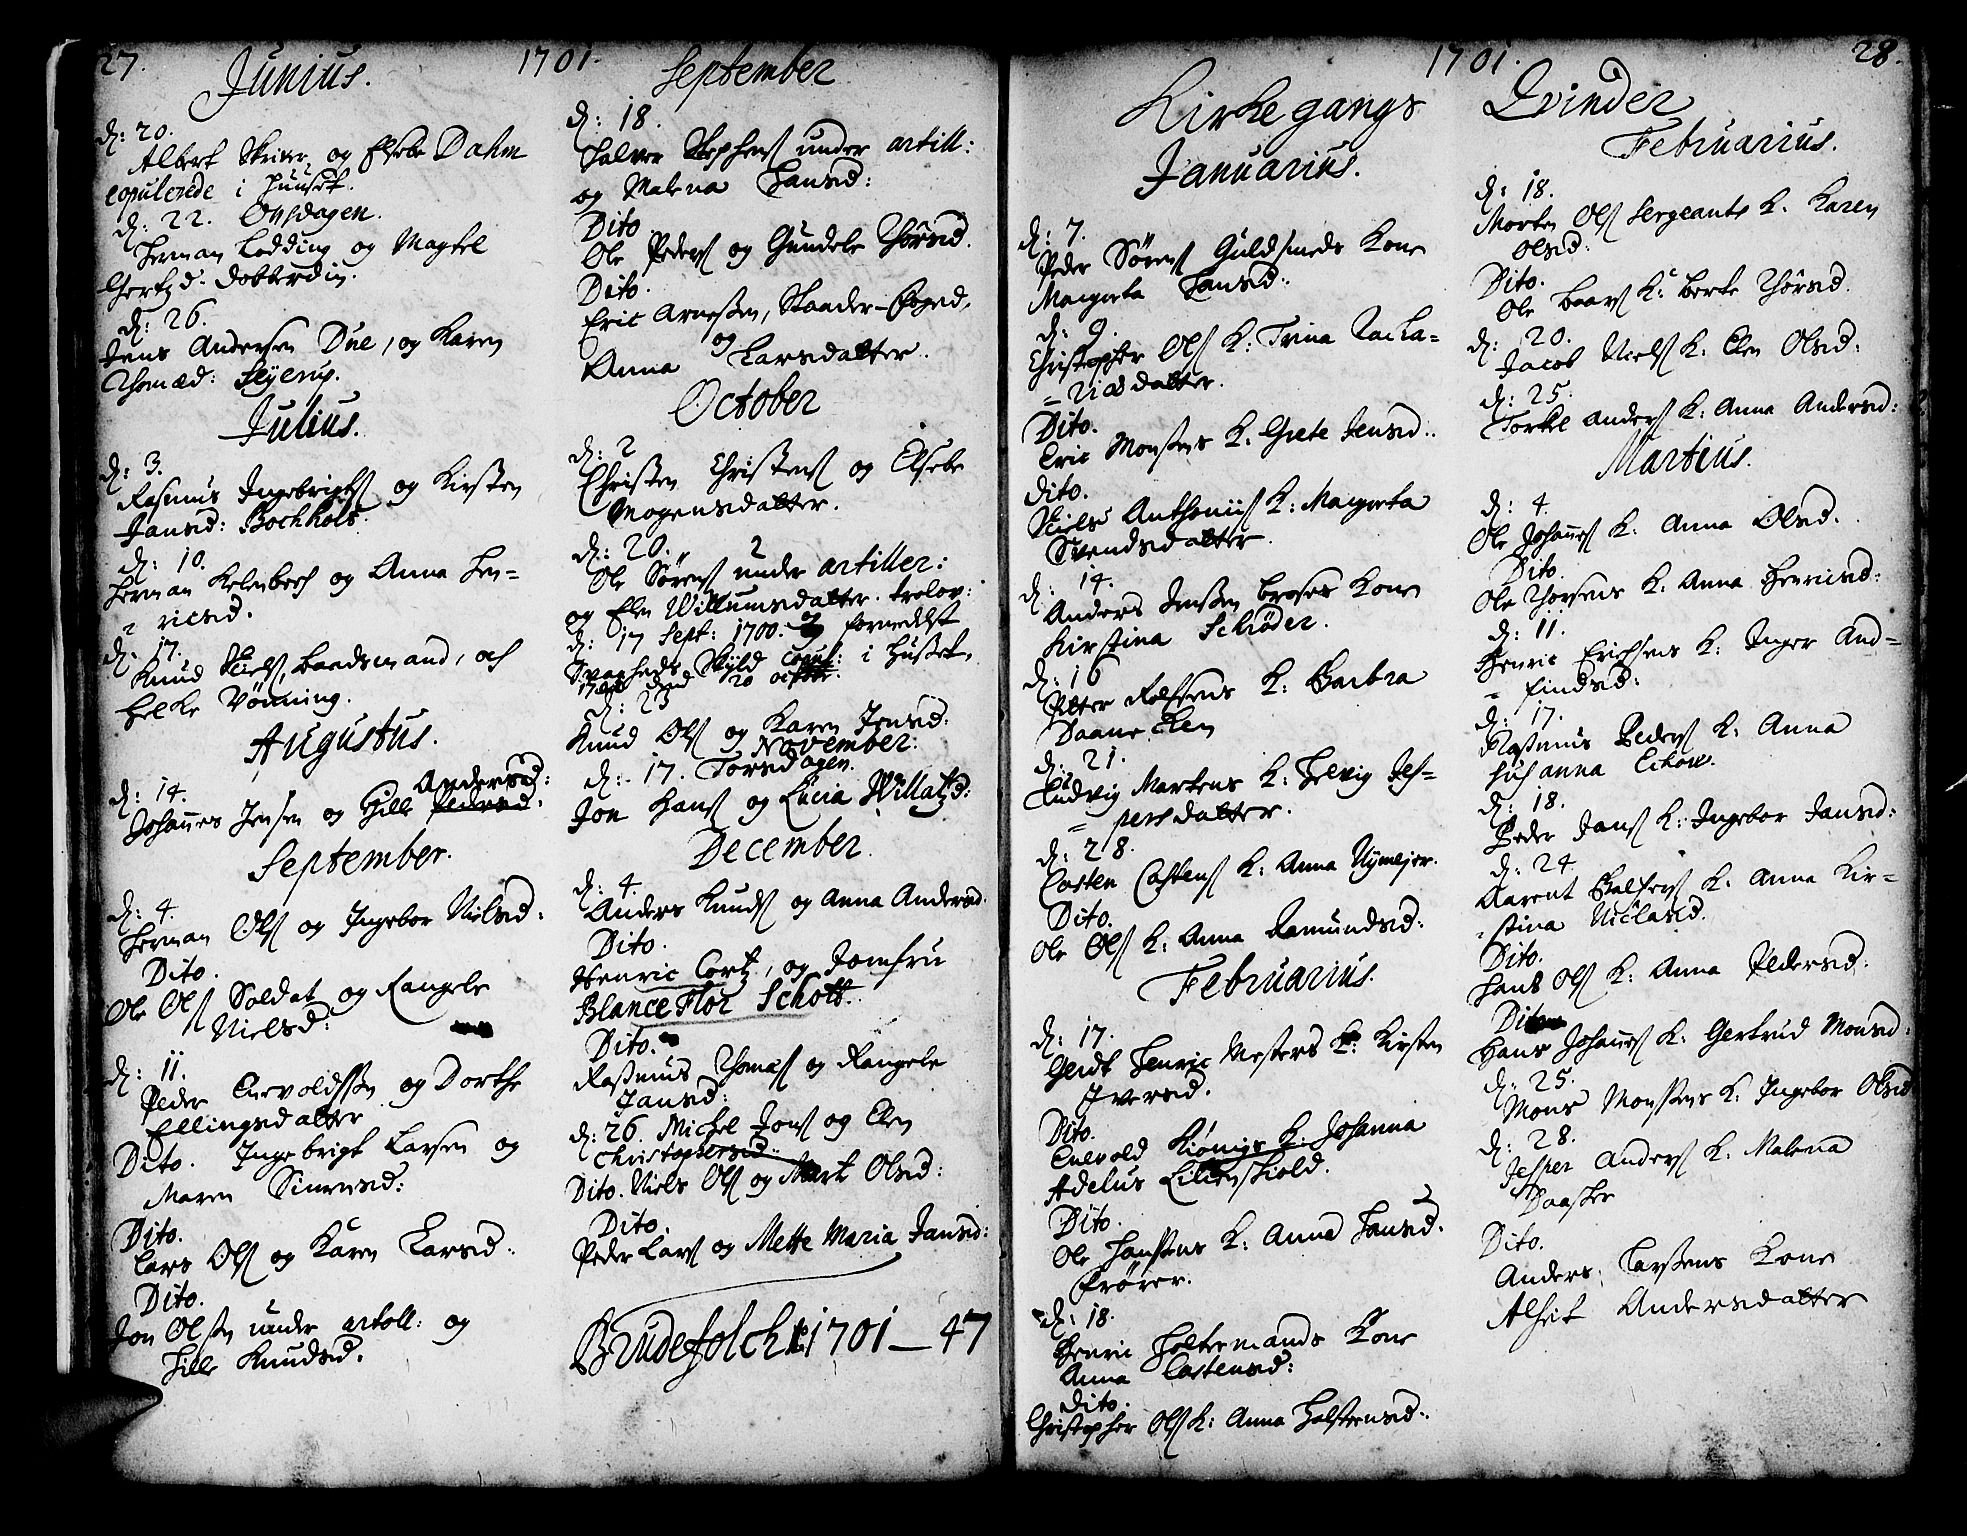 27.
1701.
Junius.
d: 20.
Albert Skriver, og Elsebe Dahm
copulerede i Huuset.
d: 22. Onsdagen.
Herman Lodding og Magtel
Gertzd. dobberdin.
d: 26.
Jens Andersen Due, og Karen
Thomæd:
Julius.
d: 3.
Rasmus Ingebrigts og Kirsten
Jansd: Bochholt.
d: 10.
Herman Kelenbech og Anna Hen=
= ricsd.
d: 17.
Knud Niels, baadsmand, och
Helke Vönning.
Augustus.
d: 14. Andersd:
Johannes Jensen og Gille Pedersd:
September.
d: 4.
Herman Ols og Ingebor Nielsd:
Dito.
Ole Ols Soldat og Rangele
Nielsd:
d: 11.
Peder Enevoldssen og Dorthe
Ellingsdatter
Dito. Ingebrigt Larsen og
Maren Simensd:
Dito.
Lars Ols og Karen Larsd:
Dito.
Jon Olsen under artoll: og
Hille Knudsd.
September
d: 18.
Halvor Stephens under artill:
og Malena Hansd:
Dito
Ole Peders og Gundele Thorsd.
Dito.
Eric Arnessen, Staader-Foged,
og
Anna Larsdatter.
October
d: 2
Christen Christens og Elsebe
Mogensdatter.
d: 20.
Ole Sörens under artiller:
og Elen Willumsdatter. trolov:
d: 17 Sept: 1700. og formedelst
Svagheds Skyld copul: i Huset.
d: 23
Knud Ols og Karen Jensd:
November:
d: 17. Torsdagen.
Jon Hans og Lucia Willatzd:
December
d: 4.
Anders Knuds og Anna Andersd.
Dito.
Henric Cortz, og Jomfru
Blanceflor Schott.
Dito.
Rasmus Thomas og Rangele
Jansd:
d: 26. Michel Jons og Elen
Christophersd:
Dito. Niels Ols og Mart Olsd:
Dito.
Peder Lars og Mette Maria Jansd:
Brudefolch 1701 — 47
1701.
28.
Kirke gangs Qvinder
Januarius.
d: 7.
Peder Sörens Guldsmeds Kone
Margreta Hansd:
d: 9.
Christopher Ols K: Trina Zacha=
= riasdatter.
Dito.
Eric Monsens K: Grete Jensd:
Dito.
Niels Anthoniis K: Margreta
Svendsdatter.
d: 14.
Anders Jensen Broses Kone
Kirstina Schröder.
d: 16
Peter Rolfsens K: Barbra
Daane Elen
d: 21.
Ludvig Martens K: Helvig Jes=
= persdatter.
d: 28.
Casten Castens K: Anna Nymejer.
Dito.
Ole Ols K: Anna Ramundsd:
Februarius.
d: 17.
Gerdt Henric Mesters K: Kirsten
Iversd.
Dito.
Enevold Kiönigs K: Johanna
Adelus Lilienskiold.
Dito.
Ole Hansens K: Anna Hansd.
Frörer.
d: 18.
Henric Holtermands Kone
Anna Castensd:
Dito.
Christopher Ols K: Anna Holstensd:
Februarius.
d: 18.
Morten Ols Sergeants K. Karen
Olsd:
Dito.
Ole Baars K: Berte Thorsd.
d: 20.
Jacob Niels K: Elen Olsd:
d: 25.
Torkel Anders K: Anna Andersd:
Martius.
d: 4.
Ole Johannes K: Anna Olsd.
Dito.
Ole Thorsens K: Anna Henricsd:
d: 11.
Henric Erichsens K: Inger And=
= findsd:
d: 17.
Rasmus Peders K: Anna
Susanna
d: 18.
Peder Jans K: Ingebor Jansd:
d: 24.
Aarent Balsers K: Anna Kir=
= stina Niclasd.
Dito.
Hans Ols K: Anna Pedersd.
Dito
Hans Johannes K: Gertrud Monsd:
d: 25.
Mons Monsens K: Ingebor Olsd
d: 28.
Jesper Anders K: Malena
Daasker
Dito.
Anders Larsens Kone
Alhet Andersdatter